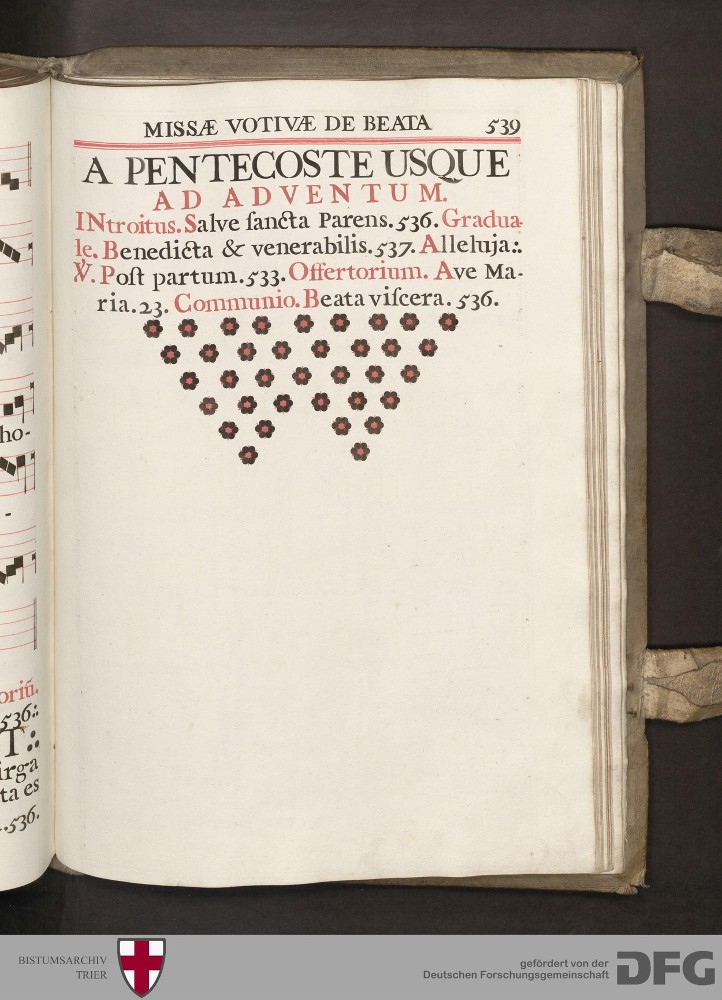 MISSÆ VOTIVÆ DE BEATA 539
A PENTECOSTE USQUE
AD ADVENTUM.
INtroitus. Salve ſancta Parens. 536. Gradua-
le. Benedicta & venerabilis. 537. Alleluja:.
℣. Poſt partum. 533. Offertorium. Ave Ma-
ria. 23. Communio. Beata viſcera. 536.
ho-
-
oriū.
536:.
T:.
irga
ta es
.536.
BISTUMSARCHIV
TRIER
gefördert von der
Deutschen Forschungsgemeinschaft
DFG